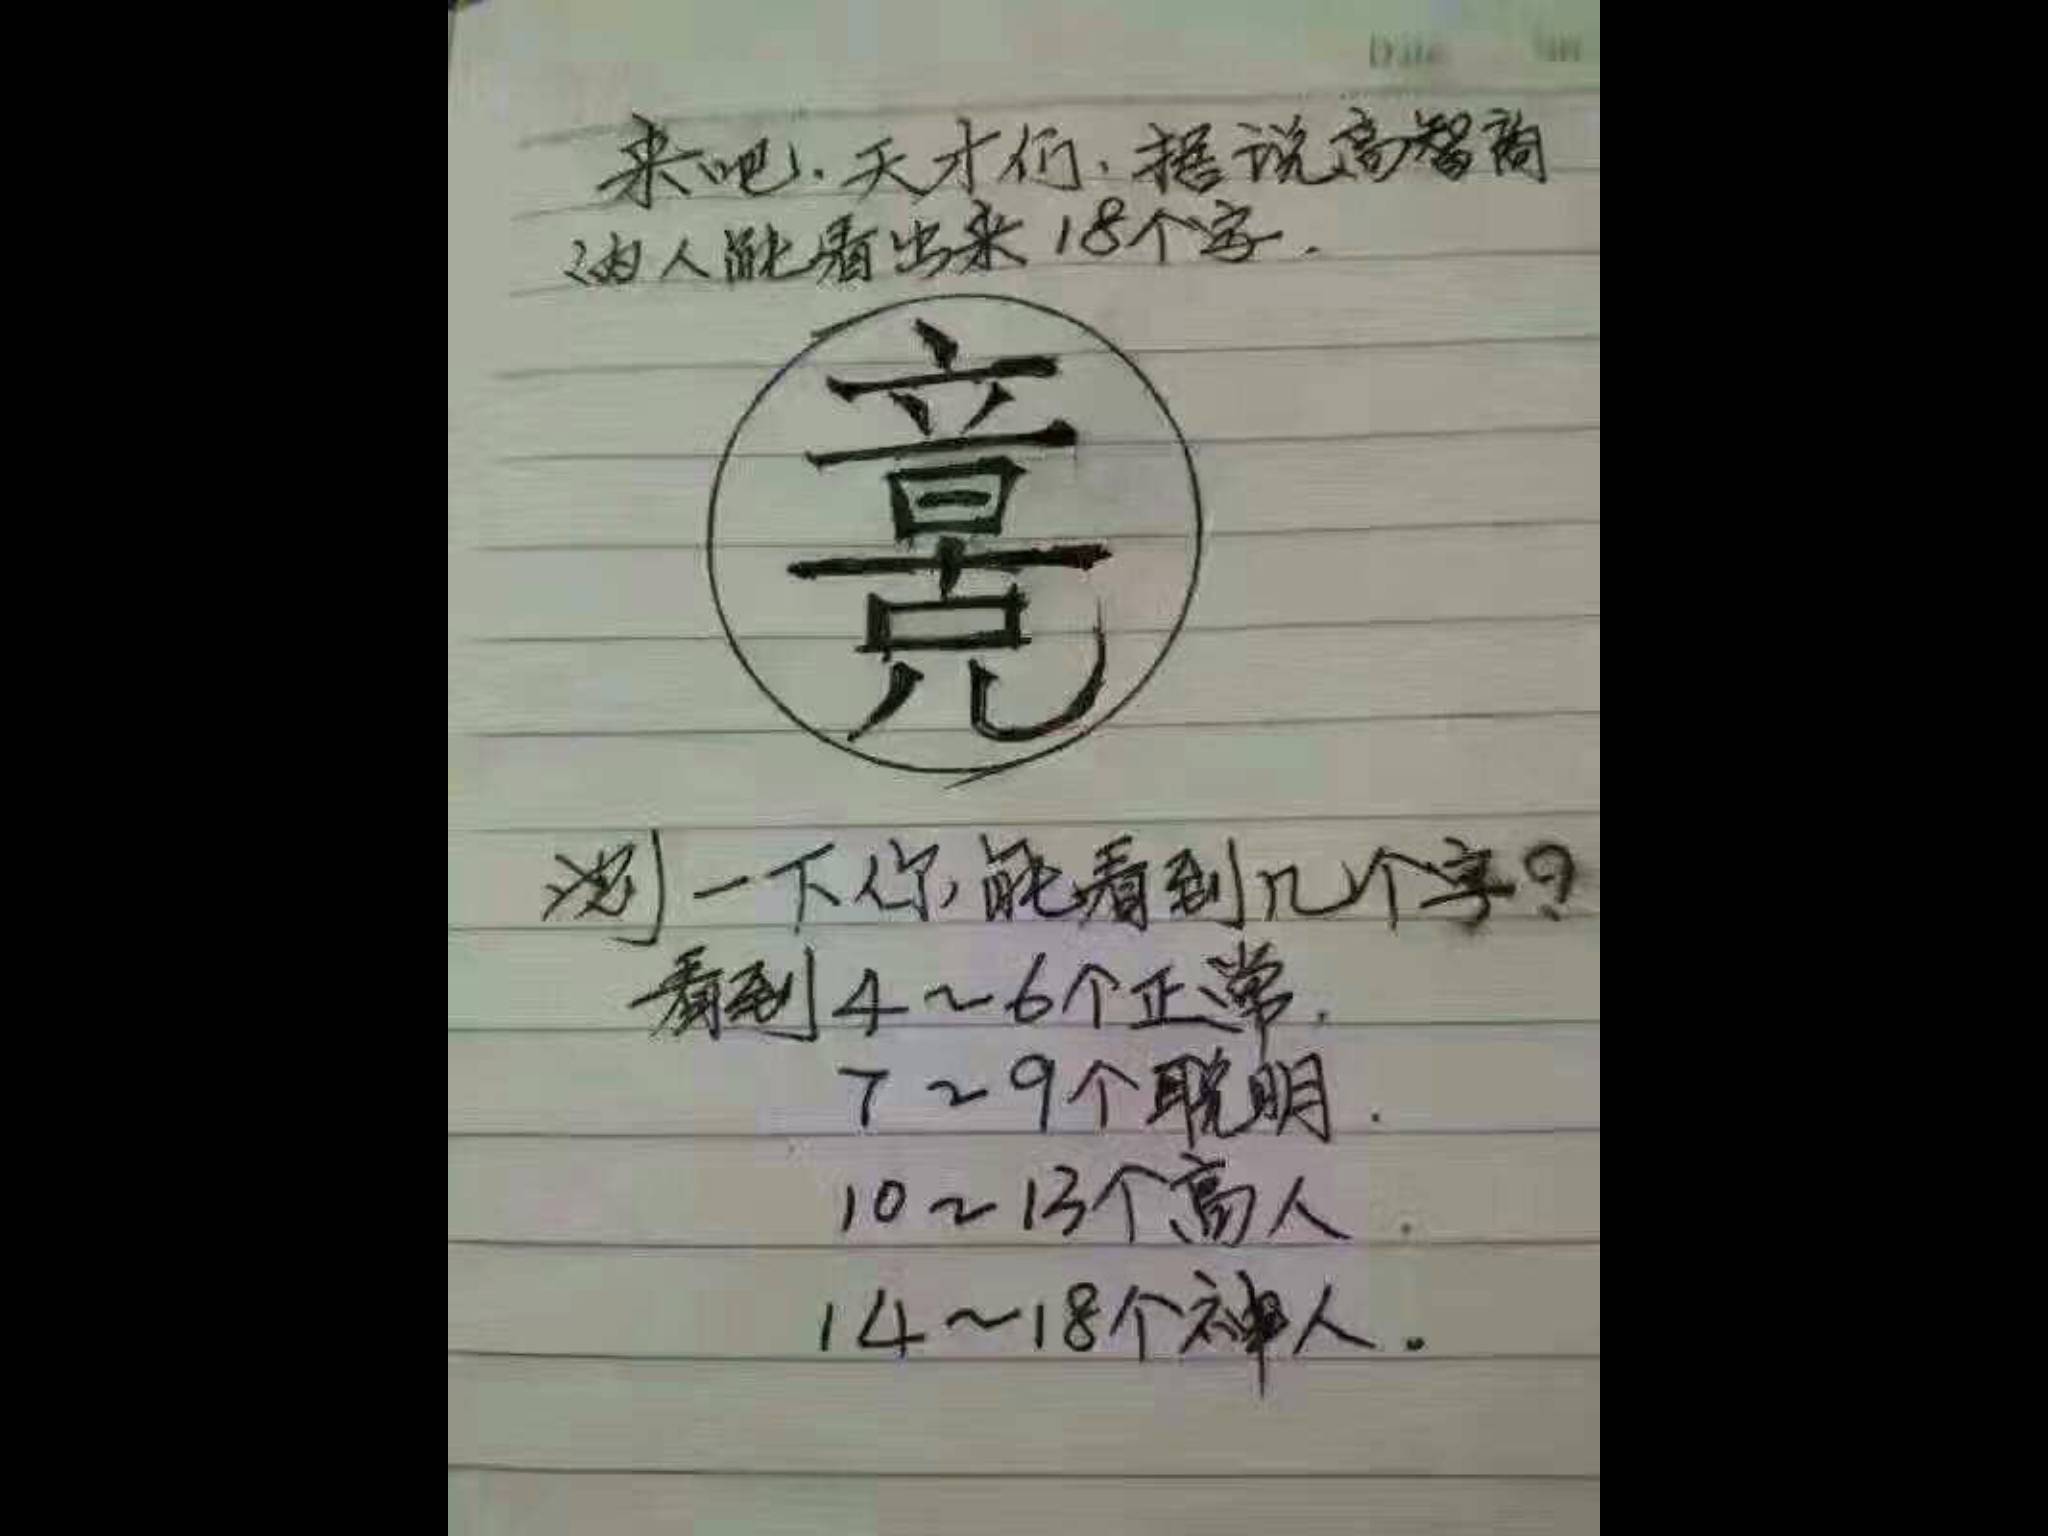 Date
来吧.天才们.据说高智商
的人能看出来18个字.
测一下你,能看到几个字?
看到4~6个正常.
7~9个聪明.
10~13个高人.
14~18个神人.